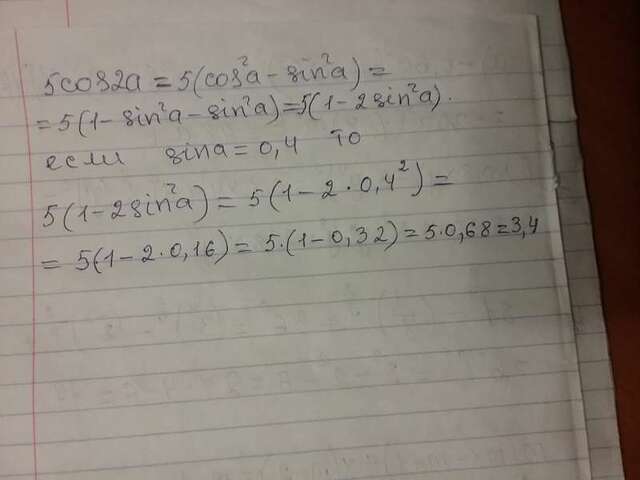 5cos2a = 5(cos²a - sin²a) =
= 5(1 - sin²a - sin²a) = 5(1 - 2sin²a).
если sina = 0,4 то
5(1 - 2sin²a) = 5(1 - 2 · 0,4²) =
= 5(1 - 2 · 0,16) = 5·(1 - 0,32) = 5·0,68 = 3,4